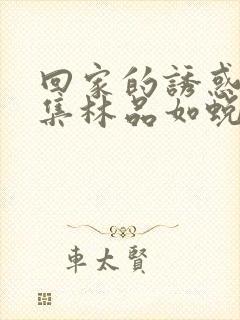 回家的誘惑
集林品如蛻
車太賢